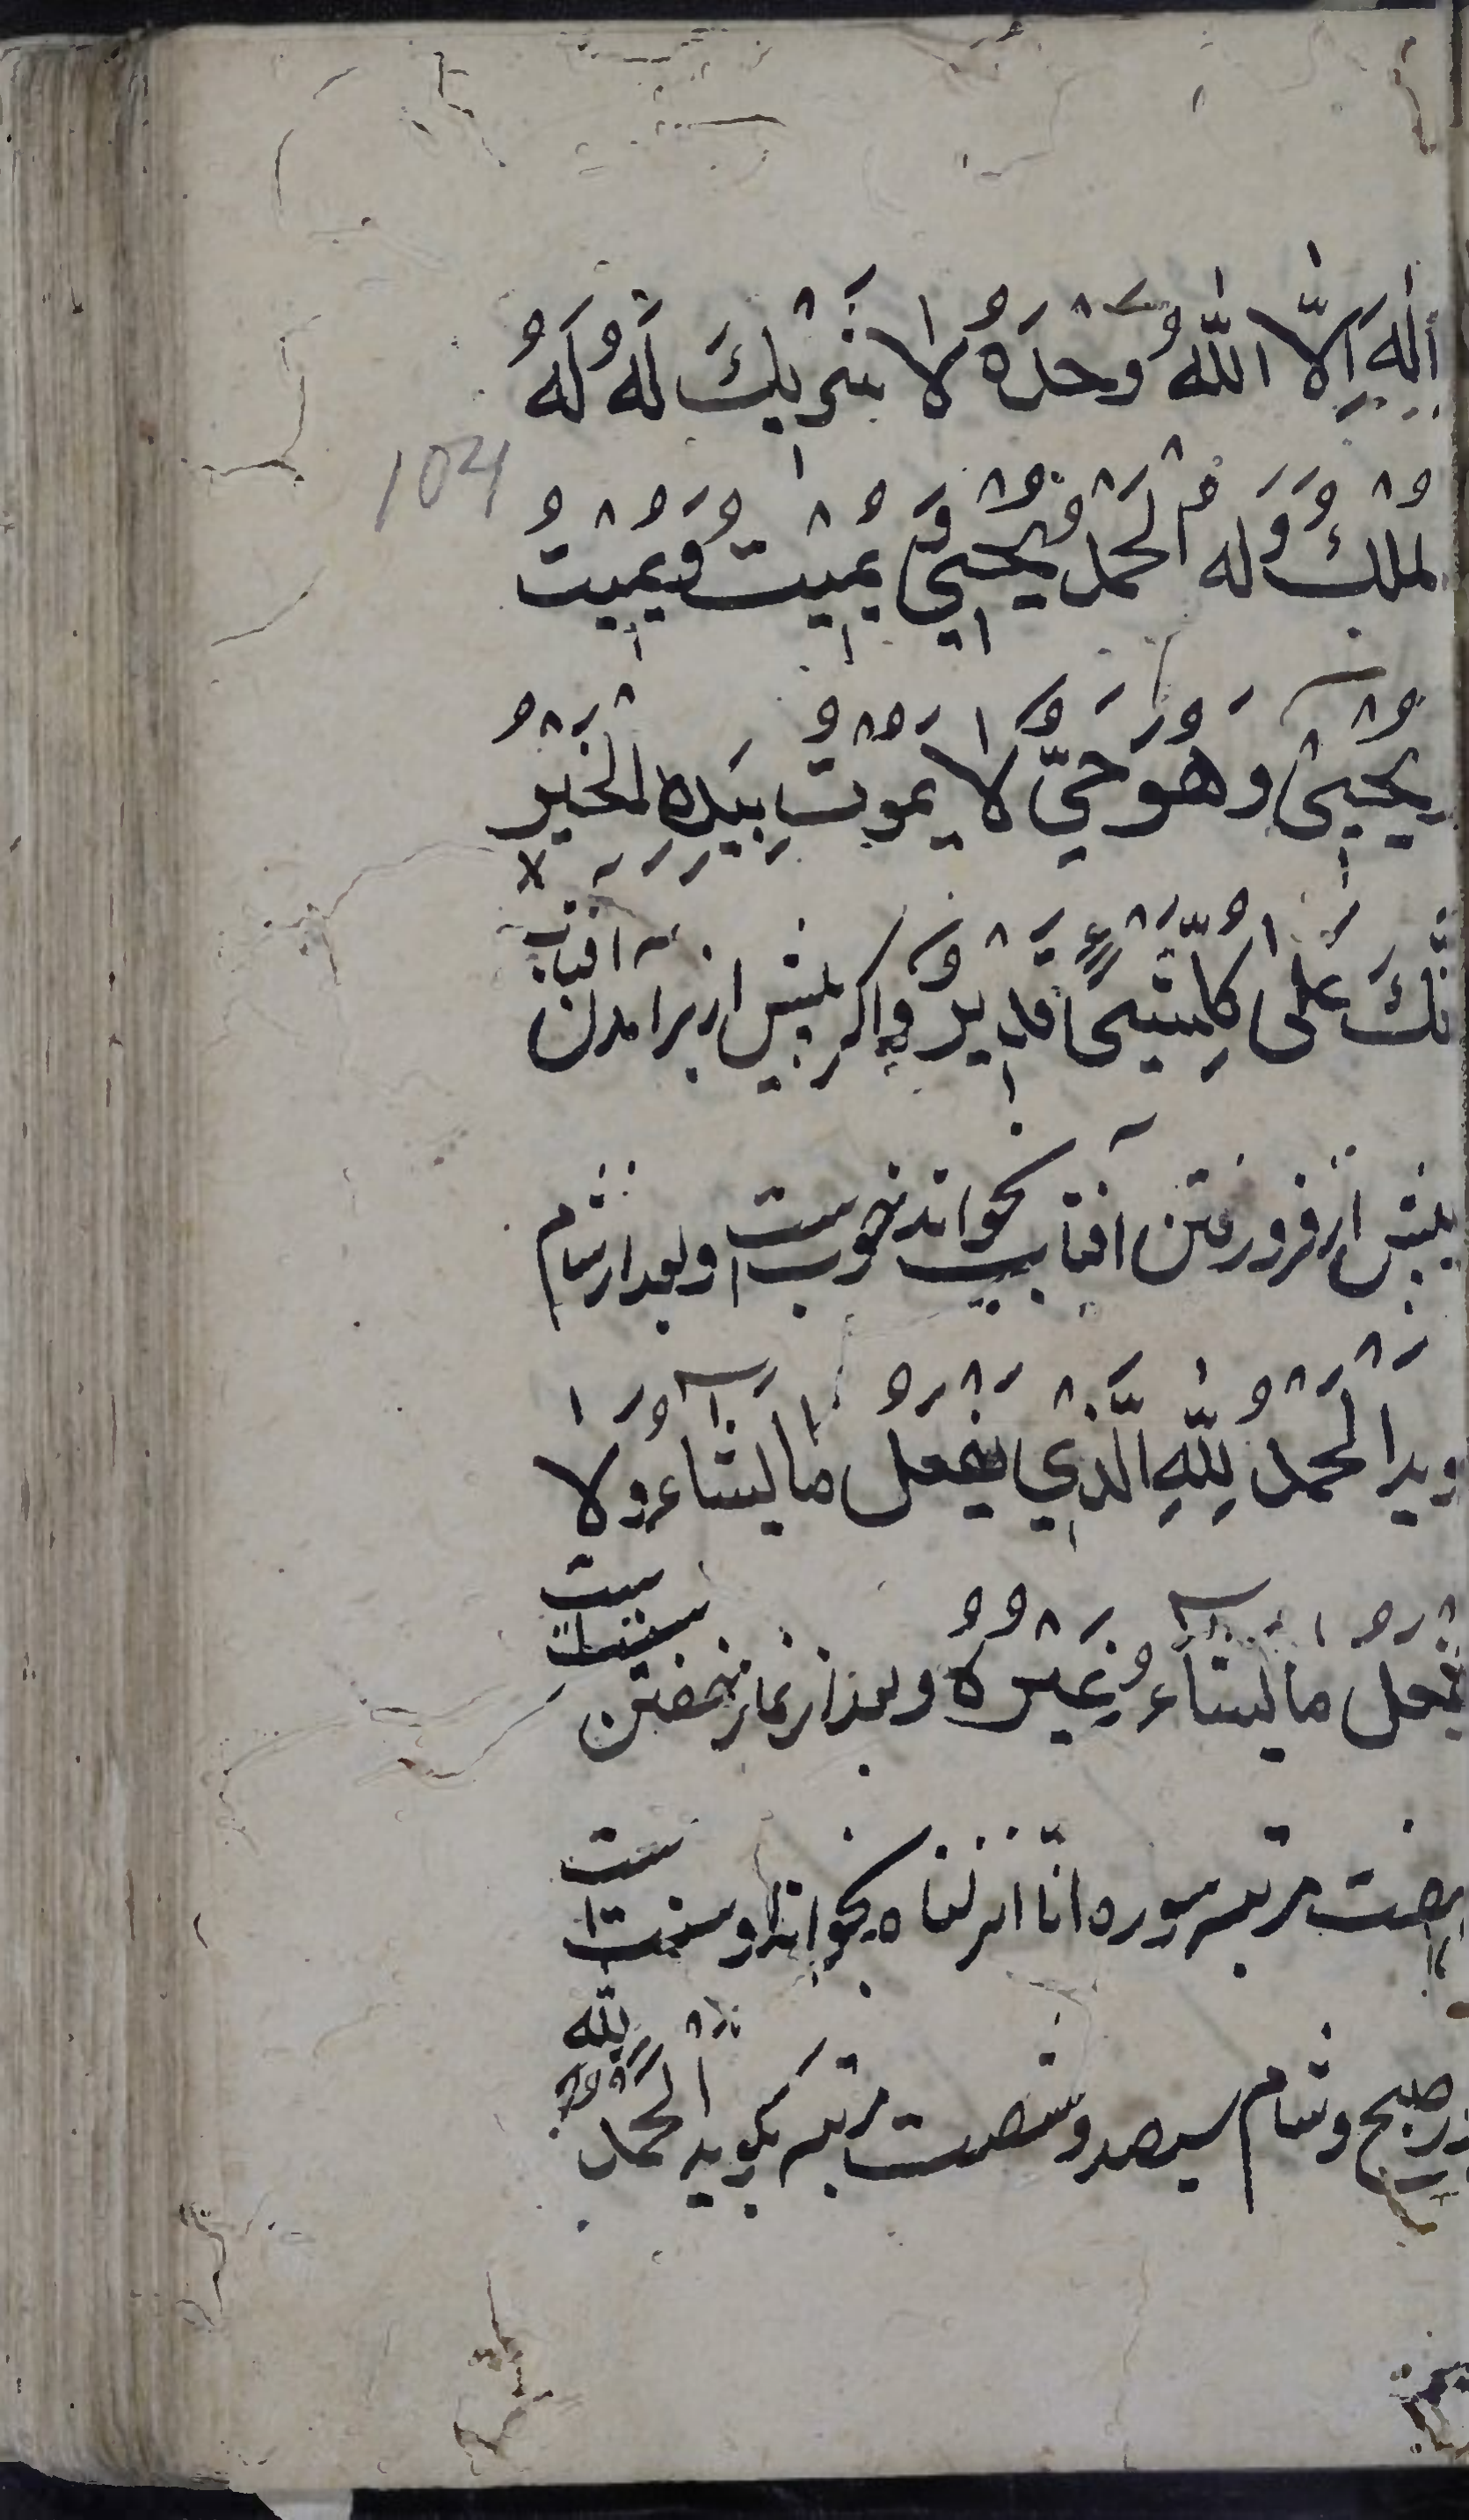 اِلٰهَ اِلَّا اللّٰهُ وَحْدَهُ لا شَرِيْكَ لَهُ لَهُ
104
لملْكُ وَلَهُ الْحَمْدُ يُحْيِيْ وَ يُمِيْتُ وَيُمِيْتُ
يُحْيِيْ وَهُوَ حَيٌّ لَا يَمُوْتُ بِيَدِهِ الْخَيْرُ
نَّكَ عَلٰى كُلِّ شَيْءٍ قَدِيْرٌ واكر پیش از برآمدن آفتاب
پیش از فرو رفتن آفتاب بخواند خوبست و بعد از شام
ويد اَلْحَمْدُ لِلّٰهِ الَّذِيْ يَفْعَلُ مَا يَشَآءُ وَلَا
يَفْعَلُ مَا يَشَآءُ غَيْرُهُ وبعد از نماز خفتن
مرتبه سوره انّا انزلناه بخواند و سنت است
در صبح و شام سیصد و شصت مرتبه بکوید الْحَمْدُ لِلّٰه